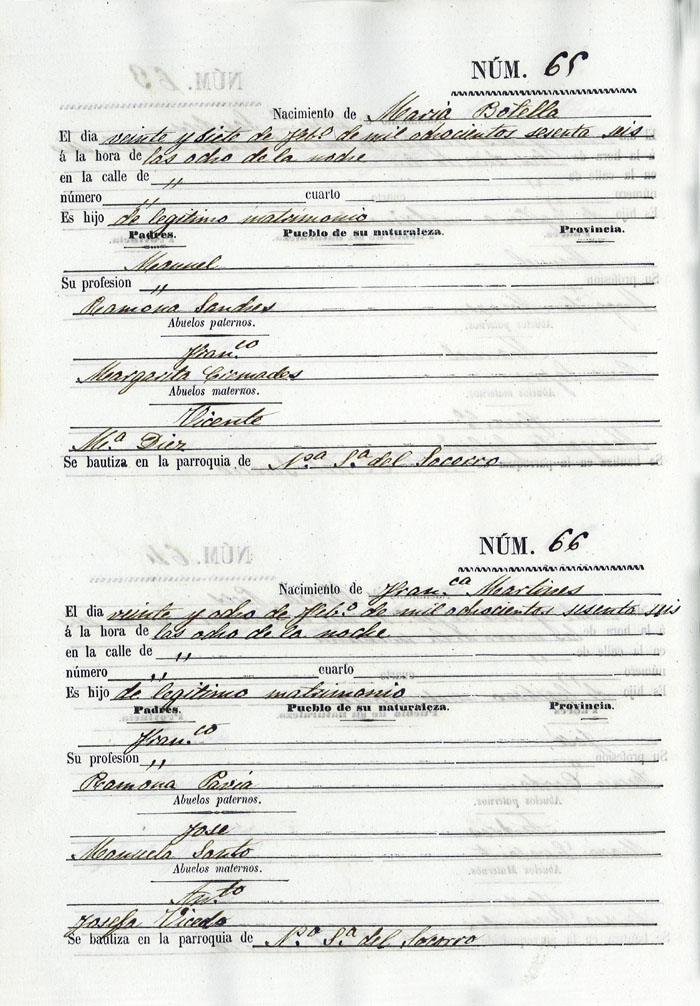 NÚM. 65
Nacimiento de Maria Botella
El dia veinte y siete de Feb.º de mil ochocientos sesenta seis
á la hora de las ocho de la noche
en la calle de "
número " cuarto
Es hijo de legitimo matrimonio
Padres. Pueblo de su naturaleza. Provincia.
Manuel
Su profesion "
Ramona Sanches
Abuelos paternos.
Fran.co
Margarita Cremades
Abuelos maternos.
Vicente
M.a Diez
Se bautiza en la parroquia de N.a S.a del Socorro
NÚM. 66
Nacimiento de Fran.ca Martines
El dia veinte y ocho de Feb.º de mil ochocientos sesenta seis
á la hora de las ocho de la noche
en la calle de "
número " cuarto
Es hijo de legitimo matrimonio
Padres. Pueblo de su naturaleza. Provincia.
Fran.co
Su profesion "
Ramona Pavia
Abuelos paternos.
Jose
Manuela Santo
Abuelos maternos.
Ant.to
Josefa Vicedo
Se bautiza en la parroquia de N.a S.a del Socorro